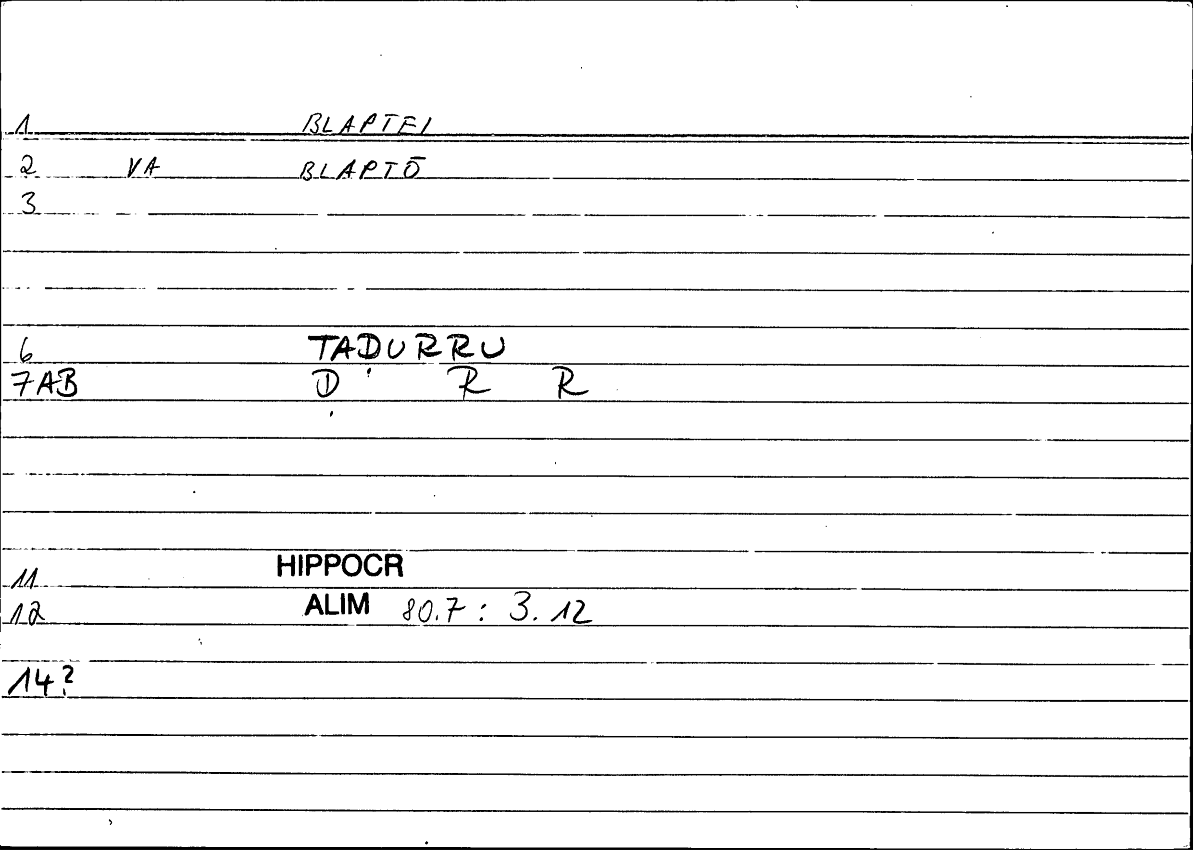 1 BLAPTEI
2 VA BLAPTŌ
3
6 TAḌURRU
7AB Ḍ R R
11 HIPPOCR
12 ALIM 80.7 : 3. 12
14?